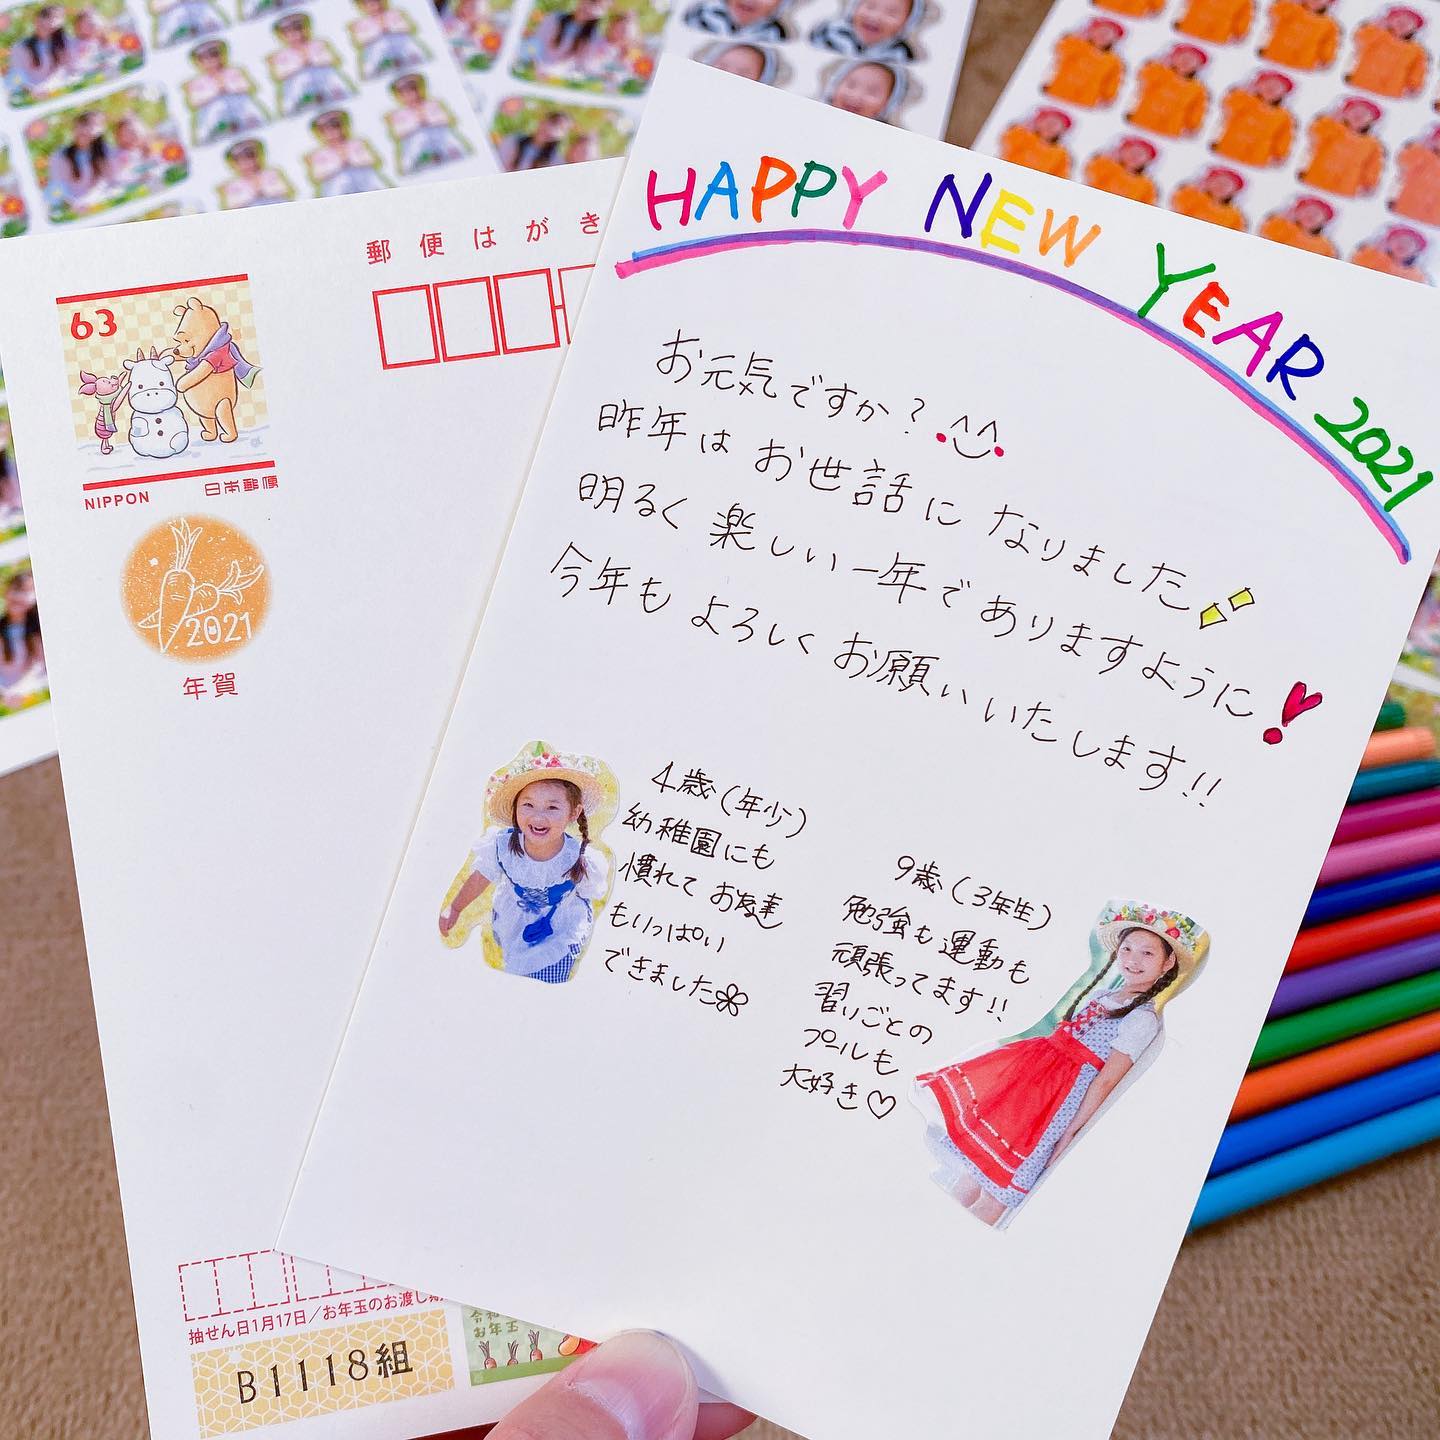 郵便はがき
63
NIPPON 日本郵便
2021
年賀
抽せん日1月17日/お年玉のお渡し期
B1118組
お年玉
HAPPY NEW YEAR 2021
お元気ですか?
昨年はお世話になりました
明るく楽しい一年でありますように
今年もよろしくお願いいたします!!
4歳(年少)
幼稚園にも
慣れてお友達
もいっぱい
できました
9歳(3年生)
勉強も運動も
頑張ってます!!
習いごとの
プールも
大好き♡